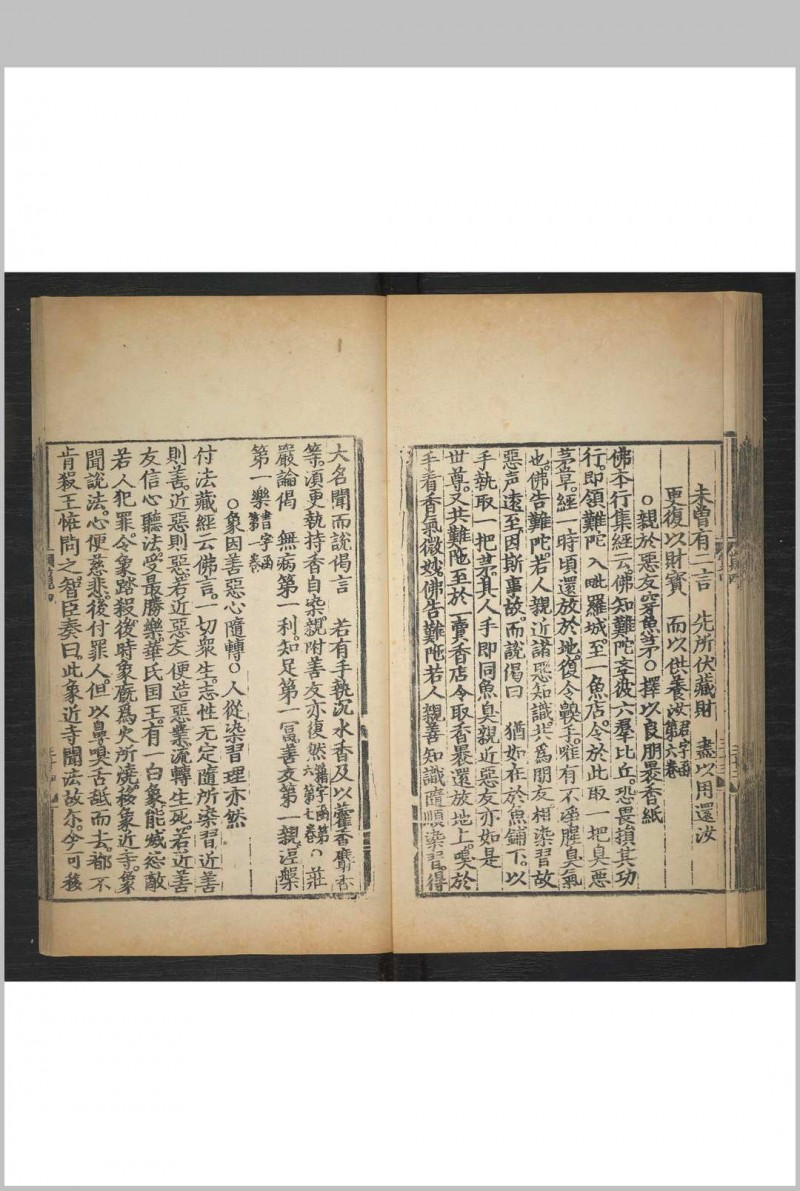 未曾有一言　先所伏藏財　盡以用還汝
更復以財寳　而以供養汝君字函第六卷
○親於惡友穿魚茅○擇以良朋褁香紙
佛本行集經云佛知難陁妄彼六羣比丘恐畏損其功
行即領難陀入毗羅城至一魚店令於此取一把臭惡
茅草經一時頃還放於地復令齅手唯有不淨腥臭氣
也佛告難陀若人親近諸惡知識共爲朋友相染習故
惡声遠至因斯事故而說偈曰　猶如在於魚鋪下以
手執取一把茅其人手即同魚臭親近惡友亦如是
世尊又共難陁至於一賣香店令取香褁還放地上嗅於
手看香氣微妙佛告難陁若人親善知識隨順染習得
大名聞而說偈言　若有手執沉水香及以藿香麝香
等須更執持香自染親附善友亦復然蕭字函第六第七卷○莊
嚴論偈　無病第一利知足第一冨善友第一親涅槃
第一樂書字函第一卷
○象因善惡心隨轉○人從染習理亦然
付法藏經云佛言一切衆生志性无定隨所染習近善
則善近惡則惡若近惡友便造惡業流轉生死若近善
友信心聽法受最勝樂華氏国王有一白象能滅怨敵
若人犯罪令象踏殺後時象廐爲火所燒移象近寺象
聞說法心便慈悲後付罪人但以鼻嗅舌䑛而去都不
肯殺王恠問之智臣奏曰此象近寺聞法故尒今可移